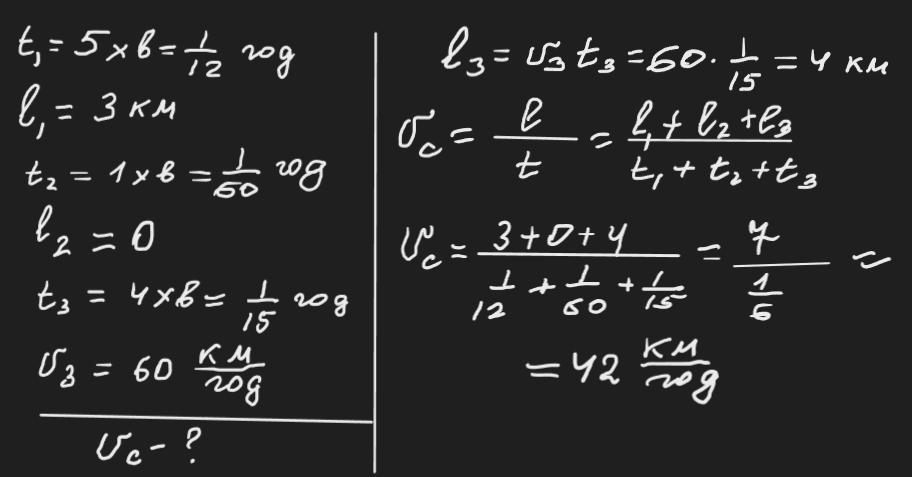 t₁ = 5 хв = 1/12 год
l₁ = 3 км
t₂ = 1 хв = 1/60 год
l₂ = 0
t₃ = 4 хв = 1/15 год
υ₃ = 60 км/год
υc - ?
l₃ = υ₃ t₃ = 60 · 1/15 = 4 км
υc = l/t = (l₁ + l₂ + l₃)/(t₁ + t₂ + t₃)
υc = (3 + 0 + 4)/(1/12 + 1/60 + 1/15) = 7/(1/6) =
= 42 км/год